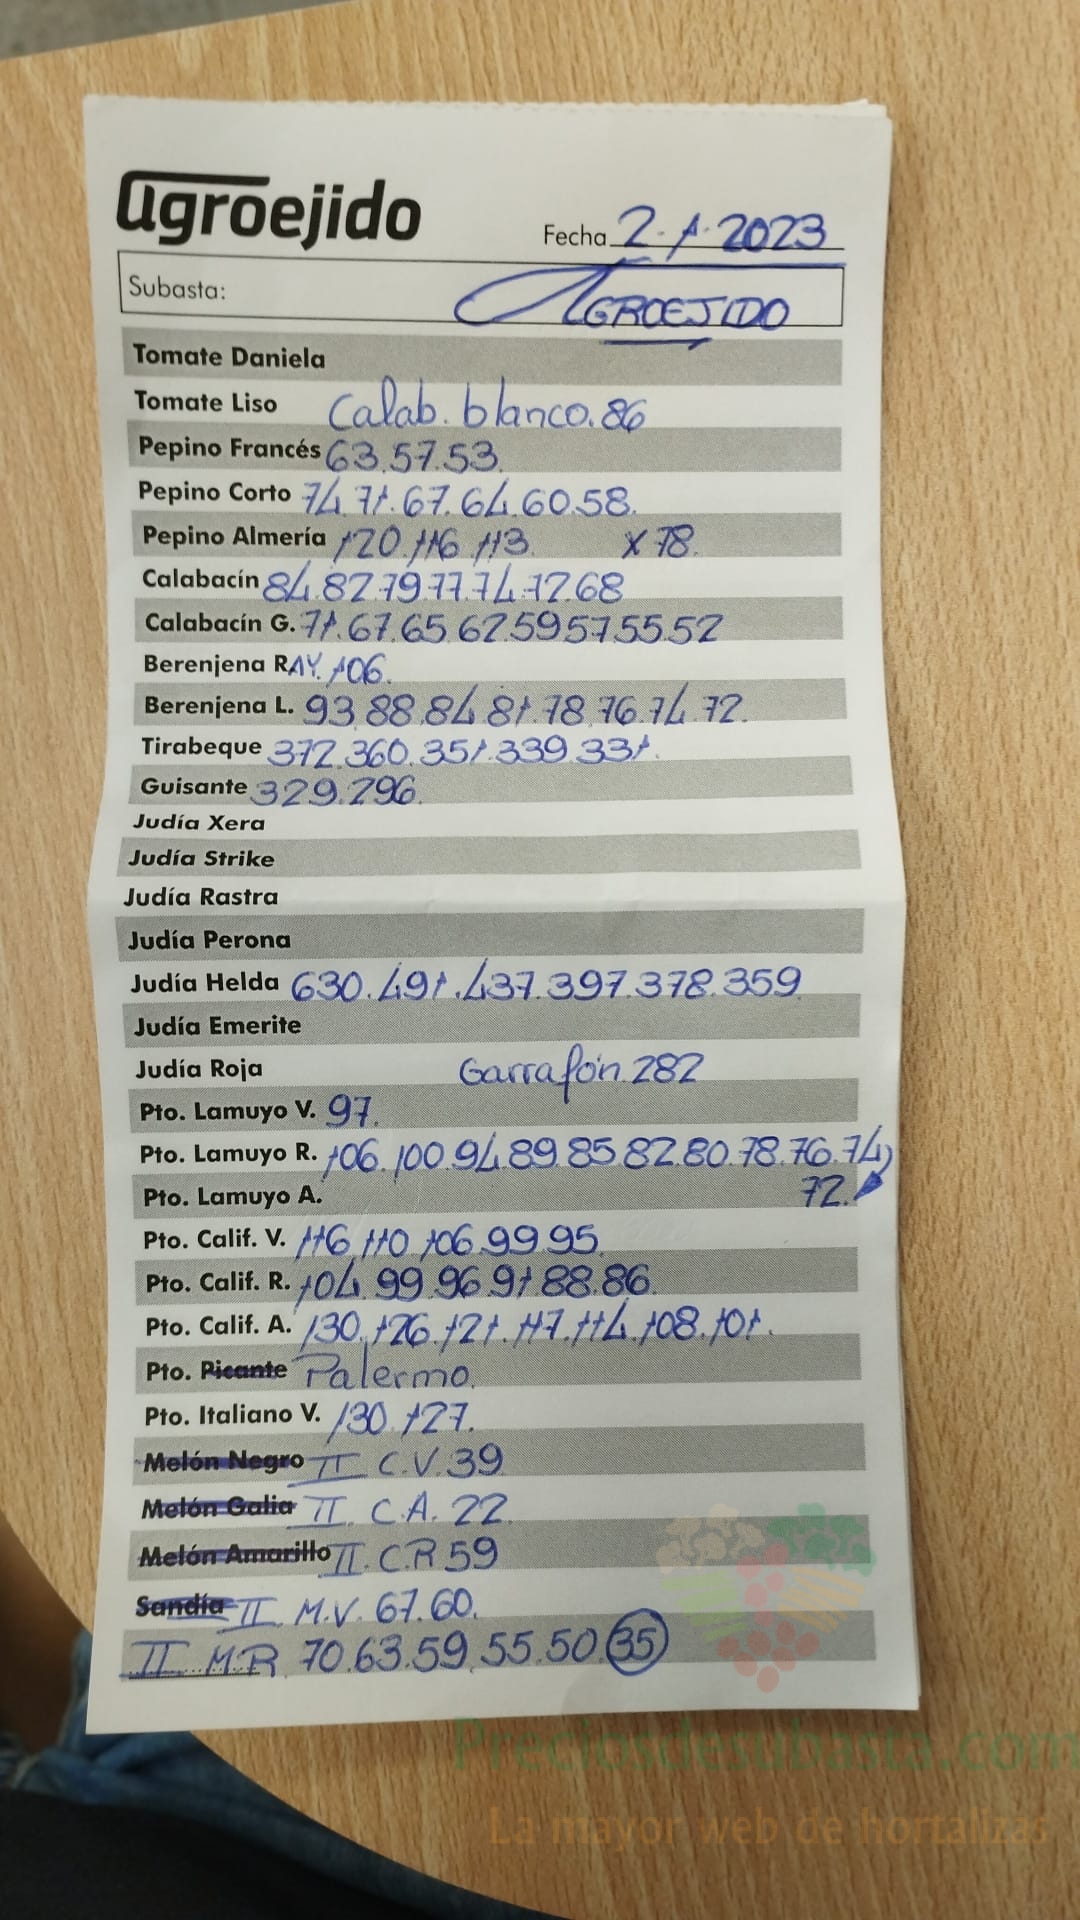 agroejido
Fecha 2·1·2023
Subasta: AGROEJIDO
Tomate Daniela
Tomate Liso Calab. blanco. 86
Pepino Francés 63.57.53.
Pepino Corto 74.71.67.64.60.58.
Pepino Almería 120.116.113. X 78.
Calabacín 84.82.79.77.74.72.68
Calabacín G. 71.67.65.62.59.57.55.52
Berenjena RAY. 106.
Berenjena L. 93.88.84.81.78.76.74.72.
Tirabeque 372.360.351.339.331.
Guisante 329.296.
Judía Xera
Judía Strike
Judía Rastra
Judía Perona
Judía Helda 630.491.437.397.378.359
Judía Emerite
Judía Roja Garrafón 282
Pto. Lamuyo V. 97.
Pto. Lamuyo R. 106.100.94.89.85.82.80.78.76.74
Pto. Lamuyo A. 72.
Pto. Calif. V. 116.110.106.99.95.
Pto. Calif. R. 104.99.96.91.88.86.
Pto. Calif. A. 130.126.121.117.114.108.101.
Pto. Picante Palermo.
Pto. Italiano V. 130.127.
Melón Negro II C.V. 39
Melón Galia II. C.A. 22.
Melón Amarillo II. C.R 59
Sandía II M.V. 67.60.
II M.R 70.63.59.55.50.35
Preciosdesubasta.com
La mayor web de hortalizas